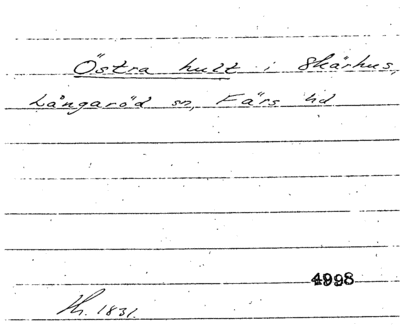 Östra hult i Skårhus,
Långaröd sn, Färs hd
4998
Th. 1831.